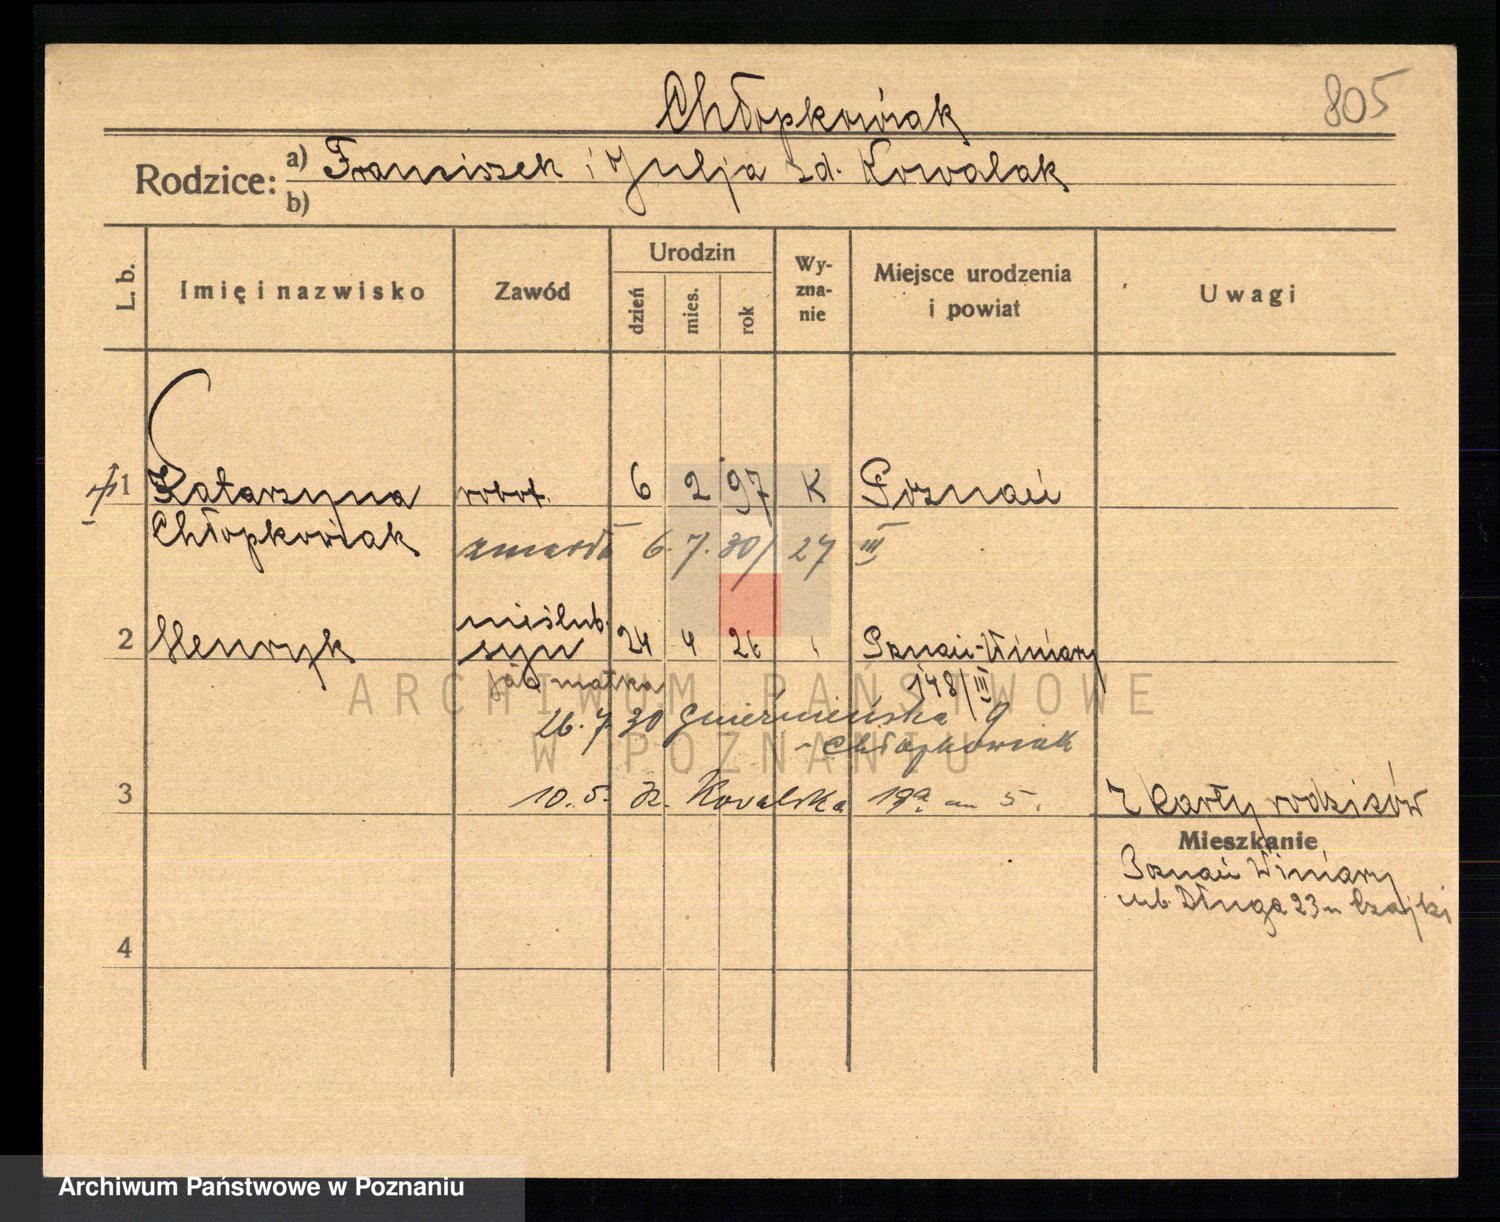 805
Chłopkowiak
Rodzice: a) Franciszek i Julja zd. Kowalak
b)
L. b. Imię i nazwisko Zawód Urodzin dzień mies. rok Wyznanie Miejsce urodzenia i powiat Uwagi
1 Katarzyna robot. 6 2 97 K Poznań
Chłopkowiak zmarła 6. 7. 30/ 27 III
2 Henryk nieślub. syn 24 4 26 Poznań-Winiary
jak matka 148/III
26. 7. 30 9
- Chłopkowiak
3 10. 5. Kowalska 19a 5.
Z karty rodziców
Mieszkanie
Poznań Winiary
Długa 23 Czajki
4
ARCHIWUM PAŃSTWOWE
W POZNANIU
Archiwum Państwowe w Poznaniu